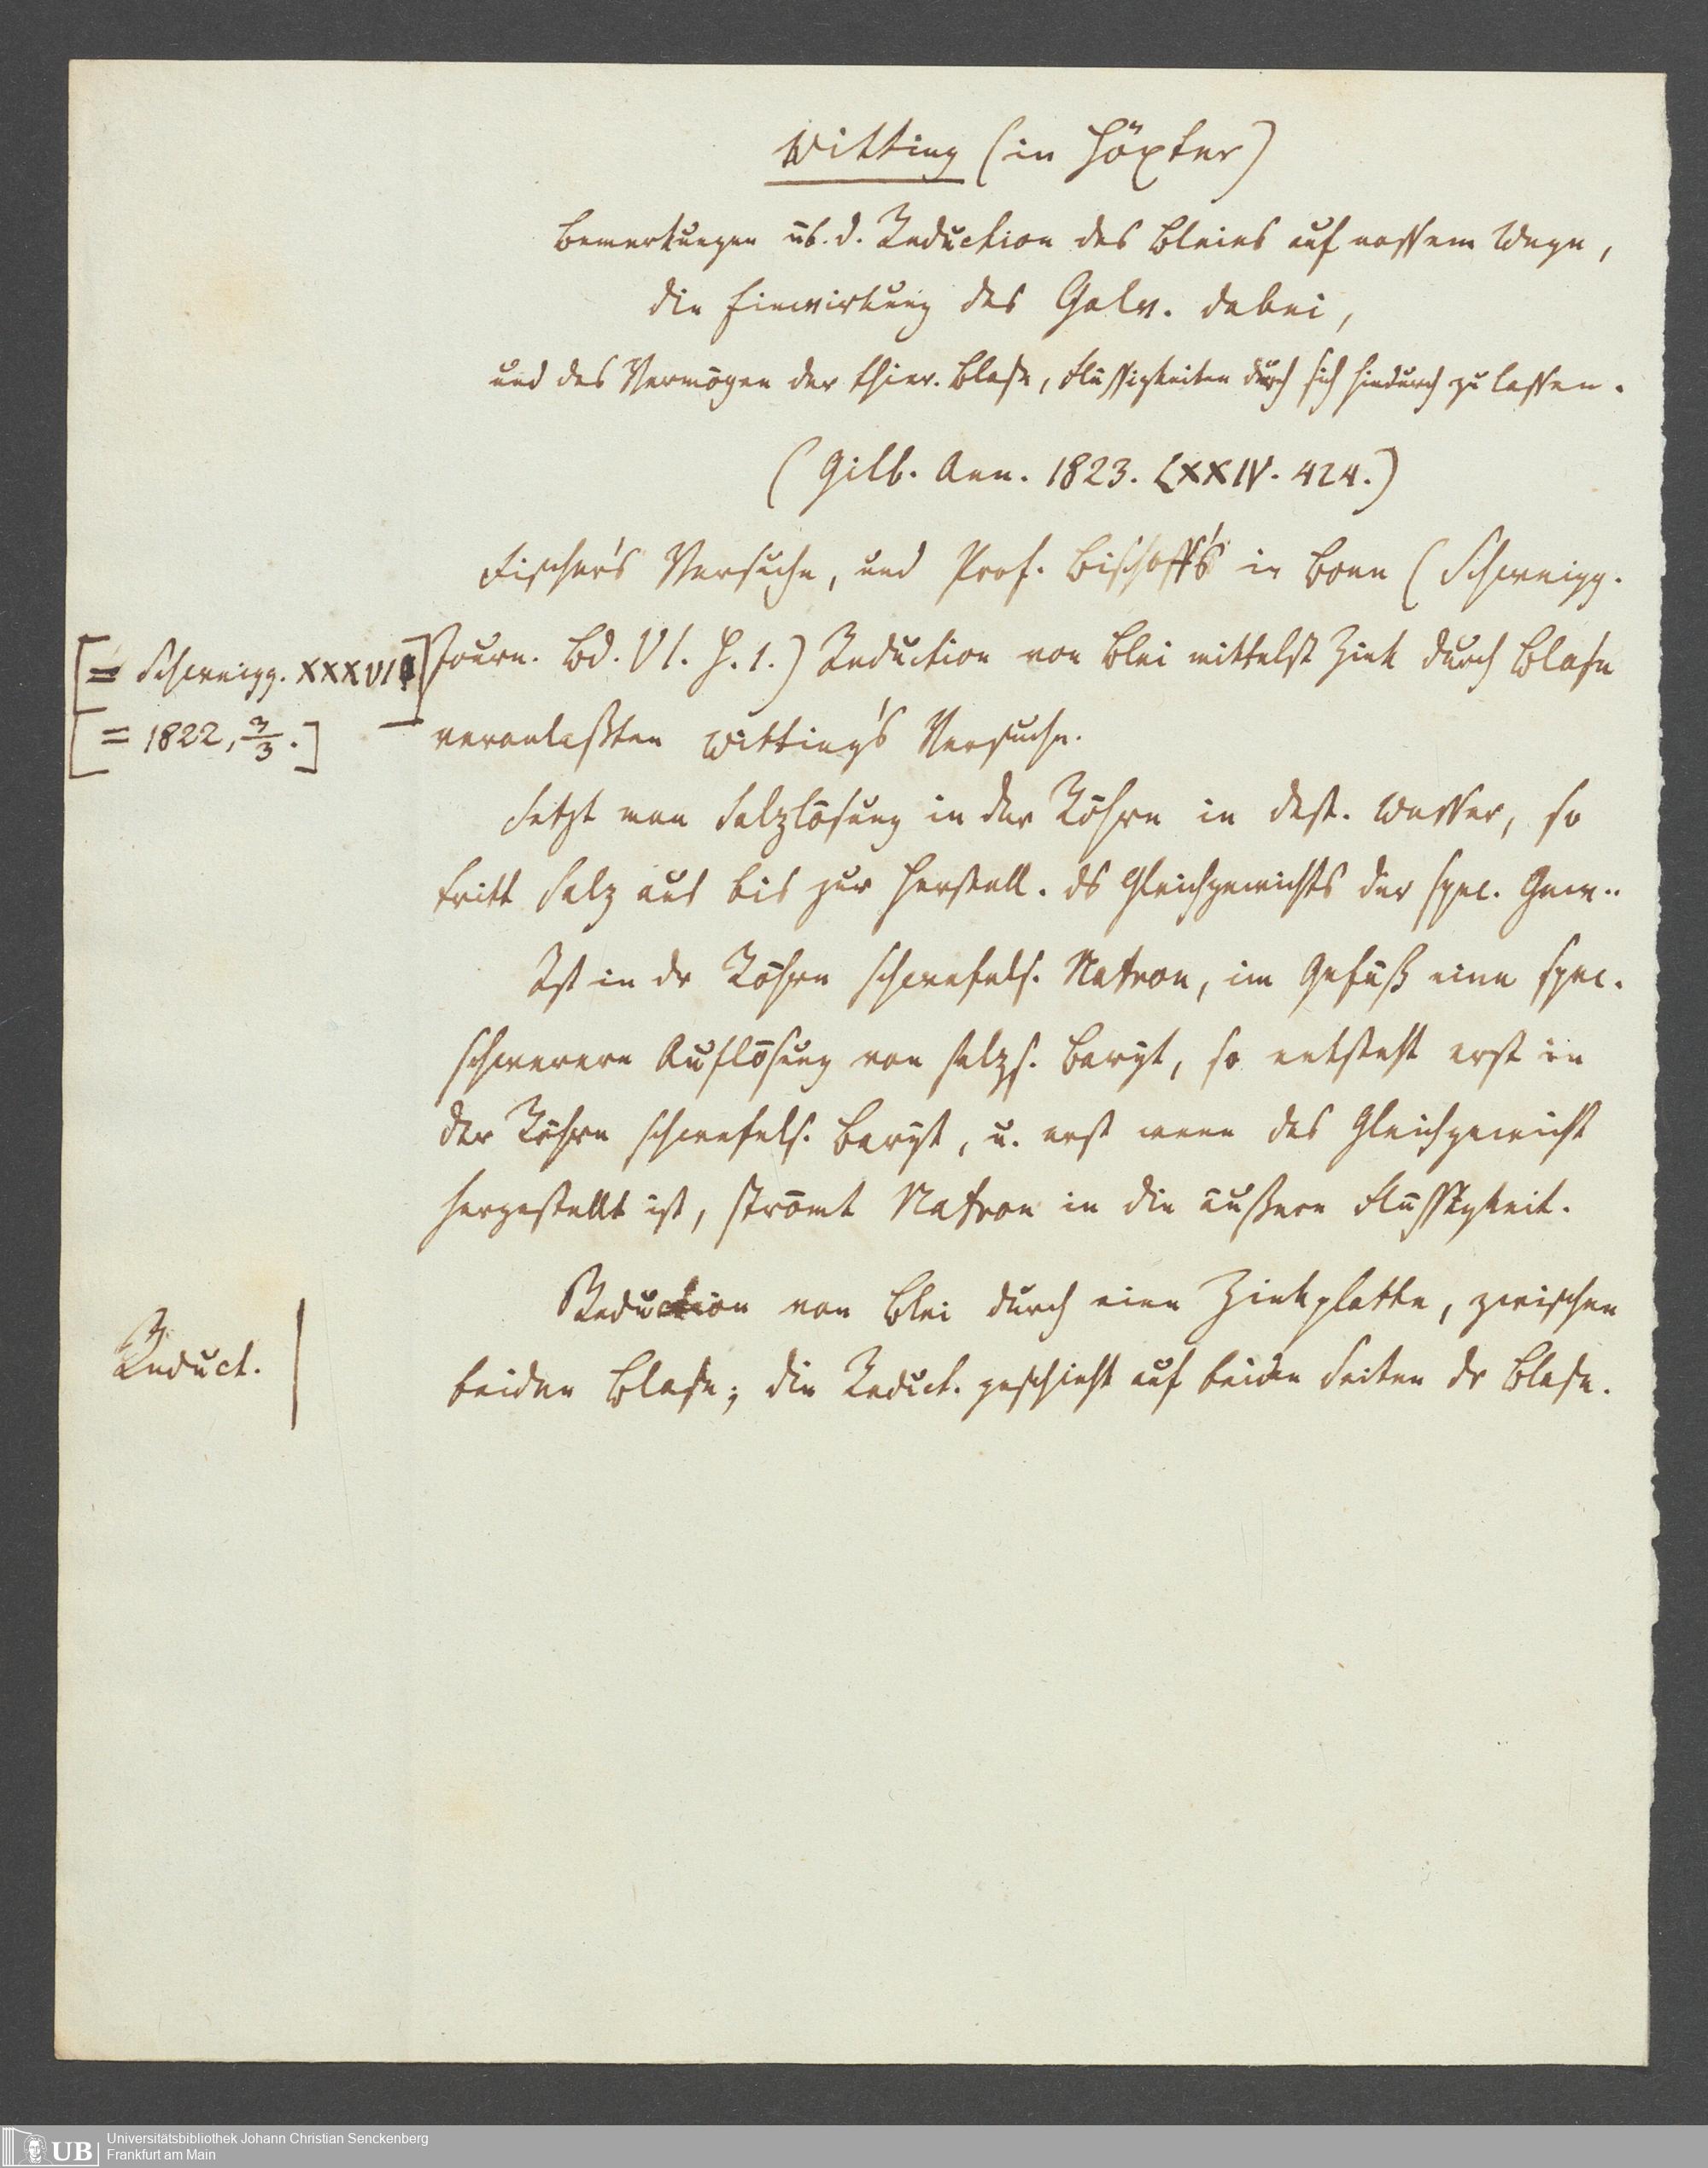 Witting (in Höxter)
Bemerkungen üb. d. Reduction des Bleies auf nassem Wege,
die Einwirkung des Galv. dabei,
und das Vermögen der thier. Blase, Flüssigkeiten durch sich hindurch zu lassen.
(Gilb. Ann. 1823. LXXIV. 424.)
Fischer's Versuche, und Prof. Bischoff's in Bonn (Schweigg.
Journ. Bd. VI. H. 1.) Reduction von Blei mittelst Zink durch Blase
veranlaßten Witting's Versuche.
[= Schweigg. XXXVI]
[= 1822, 3/3.]
Setzt man Salzlösung in der Röhre in dest. Wasser, so
tritt Salz aus bis zur Herstell. ds Gleichgewichts der spec. Gew..
Ist in dr Röhre schwefels. Natron, im Gefäß eine spec.
schwerere Auflösung von salzs. Baryt, so entsteht erst in
der Röhre schwefels. Baryt, u. erst wenn das Gleichgewicht
hergestellt ist, strömt Natron in die äußere Flüssigkeit.
Reduction von Blei durch eine Zinkplatte, zwischen
beiden Blase; die Reduct. geschieht auf beiden Seiten dr Blase.
Reduct.
Universitätsbibliothek Johann Christian Senckenberg
Frankfurt am Main
UB